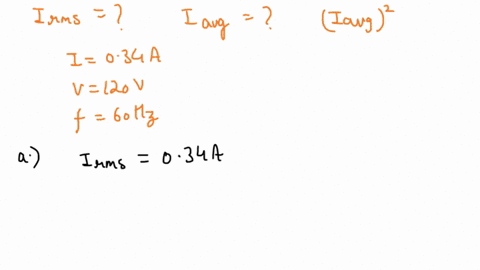 Irms = ? Iavg = ? (Iavg)²
I = 0.34 A
V = 120 V
f = 60 Hz
a.) Irms = 0.34 A